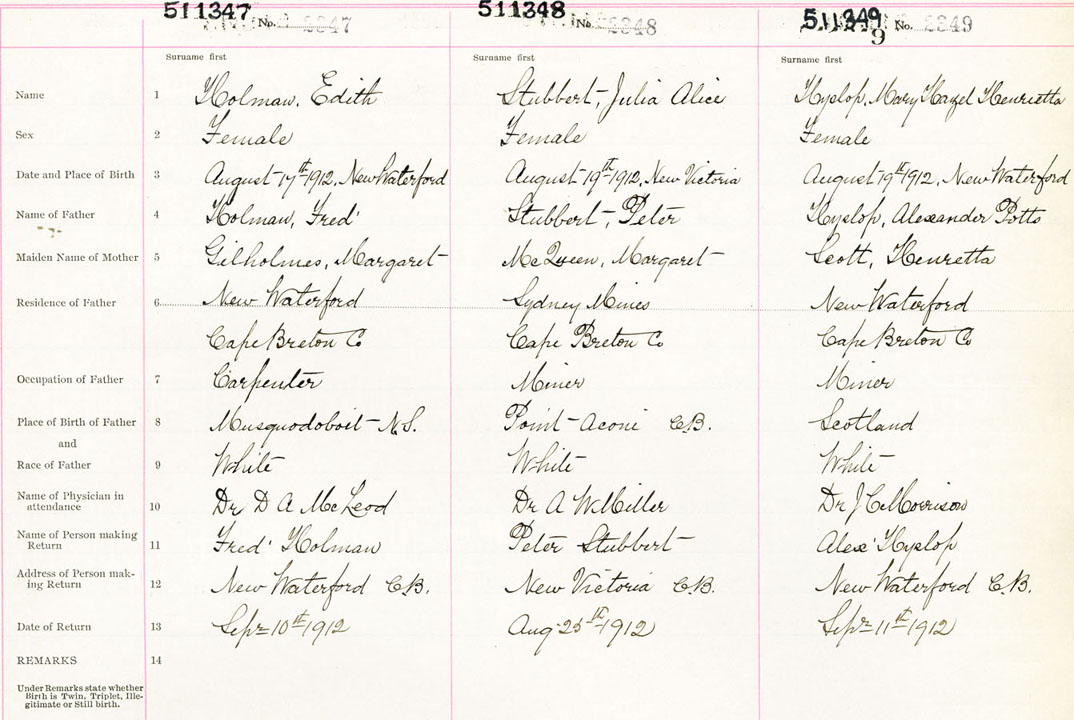 511347 No. 2347 511348 No. 2348 511349 9 No. 2349
Surname first Surname first Surname first
Name 1 Holman, Edith Stubbert, Julia Alice Hyslop, Mary Hazel Henrietta
Sex 2 Female Female Female
Date and Place of Birth 3 August 17th 1912, New Waterford August 19th 1912, New Victoria August 19th 1912, New Waterford
Name of Father 4 Holman, Fred' Stubbert, Peter Hyslop, Alexander Potts
Maiden Name of Mother 5 Gilholmes, Margaret McQueen, Margaret Scott, Henrietta
Residence of Father 6 New Waterford Sydney Mines New Waterford
Cape Breton Co Cape Breton Co Cape Breton Co
Occupation of Father 7 Carpenter Miner Miner
Place of Birth of Father 8 Musquodoboit N.S. Point Aconi C.B. Scotland
and
Race of Father 9 White White White
Name of Physician in
attendance 10 Dr D A McLeod Dr A W Miller Dr J C Morrison
Name of Person making
Return 11 Fred' Holman Peter Stubbert Alex' Hyslop
Address of Person mak-
ing Return 12 New Waterford C.B. New Victoria C.B. New Waterford C.B.
Date of Return 13 Sept 10th 1912 Aug 25th 1912 Sept 11th 1912
REMARKS 14
Under Remarks state whether
Birth is Twin, Triplet, Ille-
gitimate or Still birth.